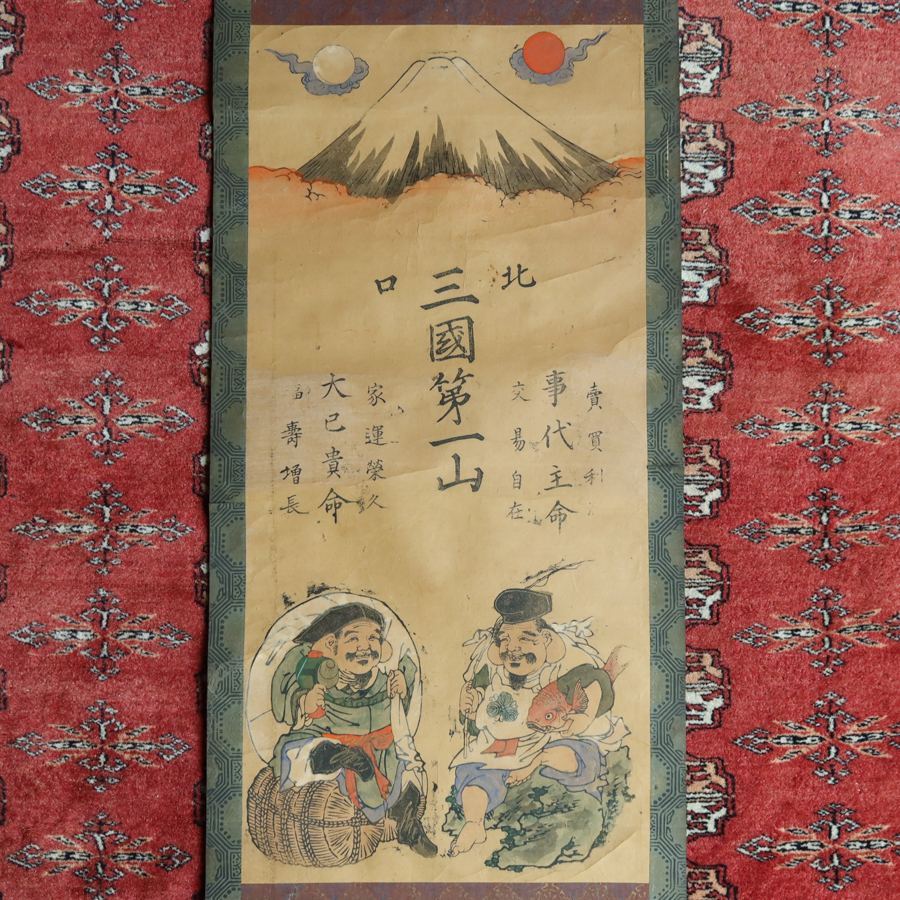 北口
賣買利
事代主命
交易自在
三國第一山
家運榮久
大已貴命
壽増長